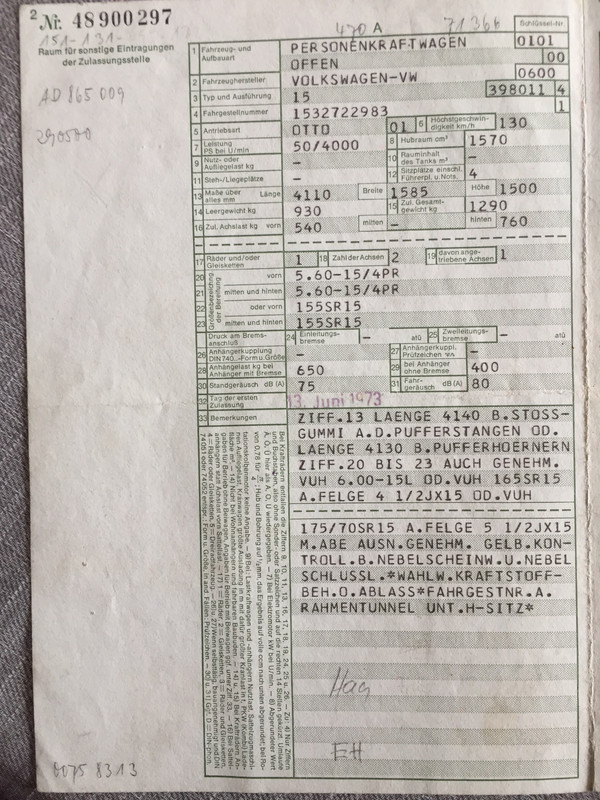 2 Nr. 48900297
470 A
7136H
Schlüssel-Nr
151-131-
Raum für sonstige Eintragungen
der Zulassungsstelle
AD 865 009
290500
1 Fahrzeug- und Aufbauart PERSONENKRAFTWAGEN 0101
OFFEN 00
2 Fahrzeughersteller VOLKSWAGEN-VW 0600
3 Typ und Ausführung 15 398011 4
4 Fahrgestellnummer 1532722983 1
5 Antriebsart OTTO 01 6 Höchstgeschwindigkeit km/h 130
7 Leistung PS bei U/min 50/4000 8 Hubraum cm³ 1570
9 Nutz- oder Aufliegelast kg - 10 Rauminhalt des Tanks m³ -
11 Steh-/Liegeplätze - 12 Sitzplätze einschl. Führerpl. u. Nots. 4
13 Maße über alles mm Länge 4110 Breite 1585 Höhe 1500
14 Leergewicht kg 930 15 Zul. Gesamtgewicht kg 1290
16 Zul. Achslast kg vorn 540 mitten - hinten 760
17 Räder und/oder Gleisketten 1 18 Zahl der Achsen 2 19 davon angetriebene Achsen 1
Größenbezeichnung der Bereifung
20 vorn 5.60-15/4PR
21 mitten und hinten 5.60-15/4PR
22 oder vorn 155SR15
23 mitten und hinten 155SR15
Druck am Bremsanschluß 24 Einleitungsbremse - atü 25 Zweileitungsbremse - atü
26 Anhängerkupplung DIN 740.-Form u. Größe - 27 Anhängerkuppl. Prüfzeichen -
28 Anhängelast kg bei Anhänger mit Bremse 650 29 bei Anhänger ohne Bremse 400
30 Standgeräusch dB (A) 75 31 Fahrgeräusch dB (A) 80
32 Tag der ersten Zulassung 13. Juni 1973
33 Bemerkungen ZIFF.13 LAENGE 4140 B.STOSS-
GUMMI A.D.PUFFERSTANGEN OD.
LAENGE 4130 B.PUFFERHOERNERN
ZIFF.20 BIS 23 AUCH GENEHM.
VUH 6.00-15L OD.VUH 165SR15
A.FELGE 4 1/2JX15 OD.VUH
175/70SR15 A.FELGE 5 1/2JX15
M.ABE AUSN.GENEHM. GELB.KON-
TROLL.B.NEBELSCHEINW.U.NEBEL
SCHLUSSL.*WAHLW.KRAFTSTOFF-
BEH.O.ABLASS*FAHRGESTNR.A.
RAHMENTUNNEL UNT.H-SITZ*
Hag
EH
0075 8313